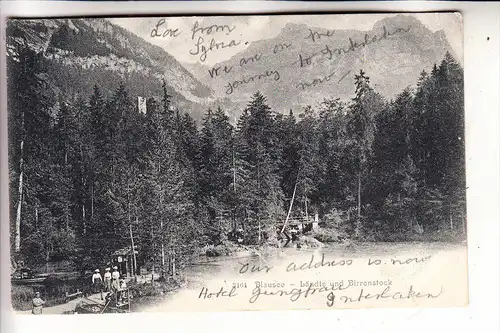 Love from
Sylvia.
We are on our
journey to Interlaken
now
2101 Blausee - Ländte und Birrenstock
Our address is now
Hotel Jungfrau Interlaken